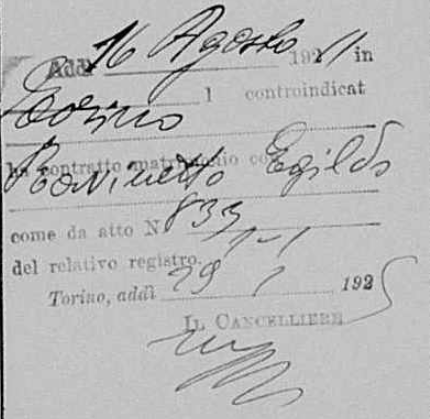 Addì 16 Agosto 1921 in
Torino l controindicat
ha contratto matrimonio co
Egildo
come da atto N 833
1-1
del relativo registro.
Torino, addì 29 1 1925
IL CANCELLIERE